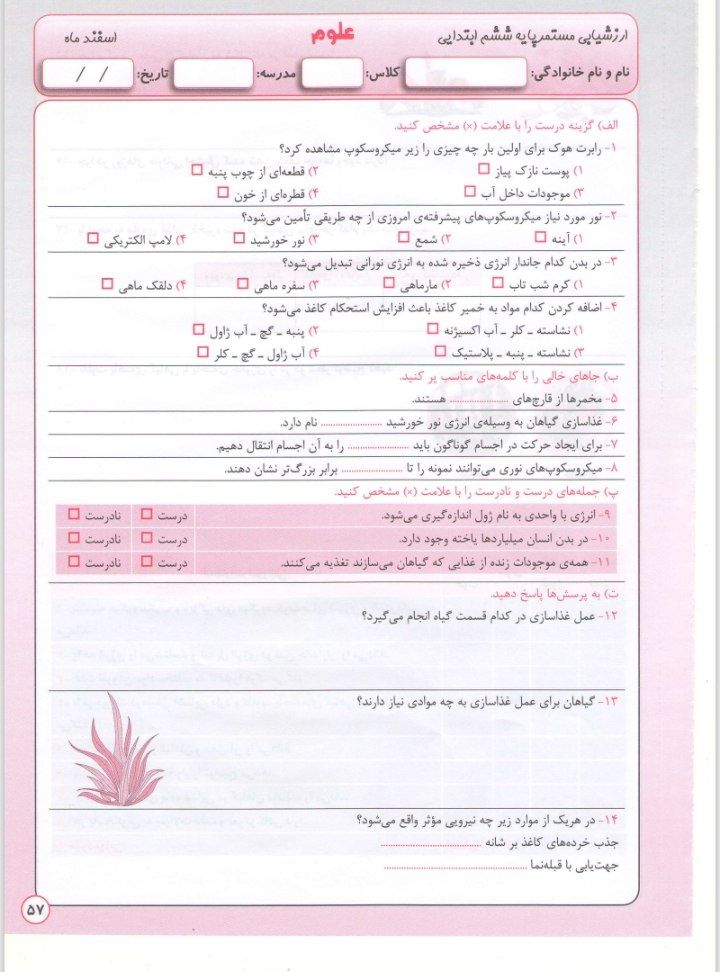 ارزشیابی مستمر پایه ششم ابتدایی علوم اسفند ماه
نام و نام خانوادگی: کلاس: مدرسه: تاریخ: / /
الف) گزینه درست را با علامت (×) مشخص کنید.
۱- رابرت هوک برای اولین بار چه چیزی را زیر میکروسکوپ مشاهده کرد؟
۱) پوست نازک پیاز ۲) قطعه‌ای از چوب پنبه
۳) موجودات داخل آب ۴) قطره‌ای از خون
۲- نور مورد نیاز میکروسکوپ‌های پیشرفته‌ی امروزی از چه طریقی تأمین می‌شود؟
۱) آینه ۲) شمع ۳) نور خورشید ۴) لامپ الکتریکی
۳- در بدن کدام جاندار انرژی ذخیره شده به انرژی نورانی تبدیل می‌شود؟
۱) کرم شب تاب ۲) مارماهی ۳) سفره ماهی ۴) دلفک ماهی
۴- اضافه کردن کدام مواد به خمیر کاغذ باعث افزایش استحکام کاغذ می‌شود؟
۱) نشاسته ـ کلر ـ آب اکسیژنه ۲) پنبه ـ گچ ـ آب ژاول
۳) نشاسته ـ پنبه ـ پلاستیک ۴) آب ژاول ـ گچ ـ کلر
ب) جاهای خالی را با کلمه‌های مناسب پر کنید.
۵- مخمرها از قارچ‌های .................... هستند.
۶- غذاسازی گیاهان به وسیله‌ی انرژی نور خورشید .................... نام دارد.
۷- برای ایجاد حرکت در اجسام گوناگون باید .................... را به آن اجسام انتقال دهیم.
۸- میکروسکوپ‌های نوری می‌توانند نمونه را تا .................... برابر بزرگ‌تر نشان دهند.
پ) جمله‌های درست و نادرست را با علامت (×) مشخص کنید.
۹- انرژی با واحدی به نام ژول اندازه‌گیری می‌شود. درست نادرست
۱۰- در بدن انسان میلیاردها یاخته وجود دارد. درست نادرست
۱۱- همه‌ی موجودات زنده از غذایی که گیاهان می‌سازند تغذیه می‌کنند. درست نادرست
ت) به پرسش‌ها پاسخ دهید.
۱۲- عمل غذاسازی در کدام قسمت گیاه انجام می‌گیرد؟
۱۳- گیاهان برای عمل غذاسازی به چه موادی نیاز دارند؟
۱۴- در هریک از موارد زیر چه نیرویی مؤثر واقع می‌شود؟
جذب خرده‌های کاغذ بر شانه ..............................
جهت‌یابی با قبله‌نما ..........................................
۵۷